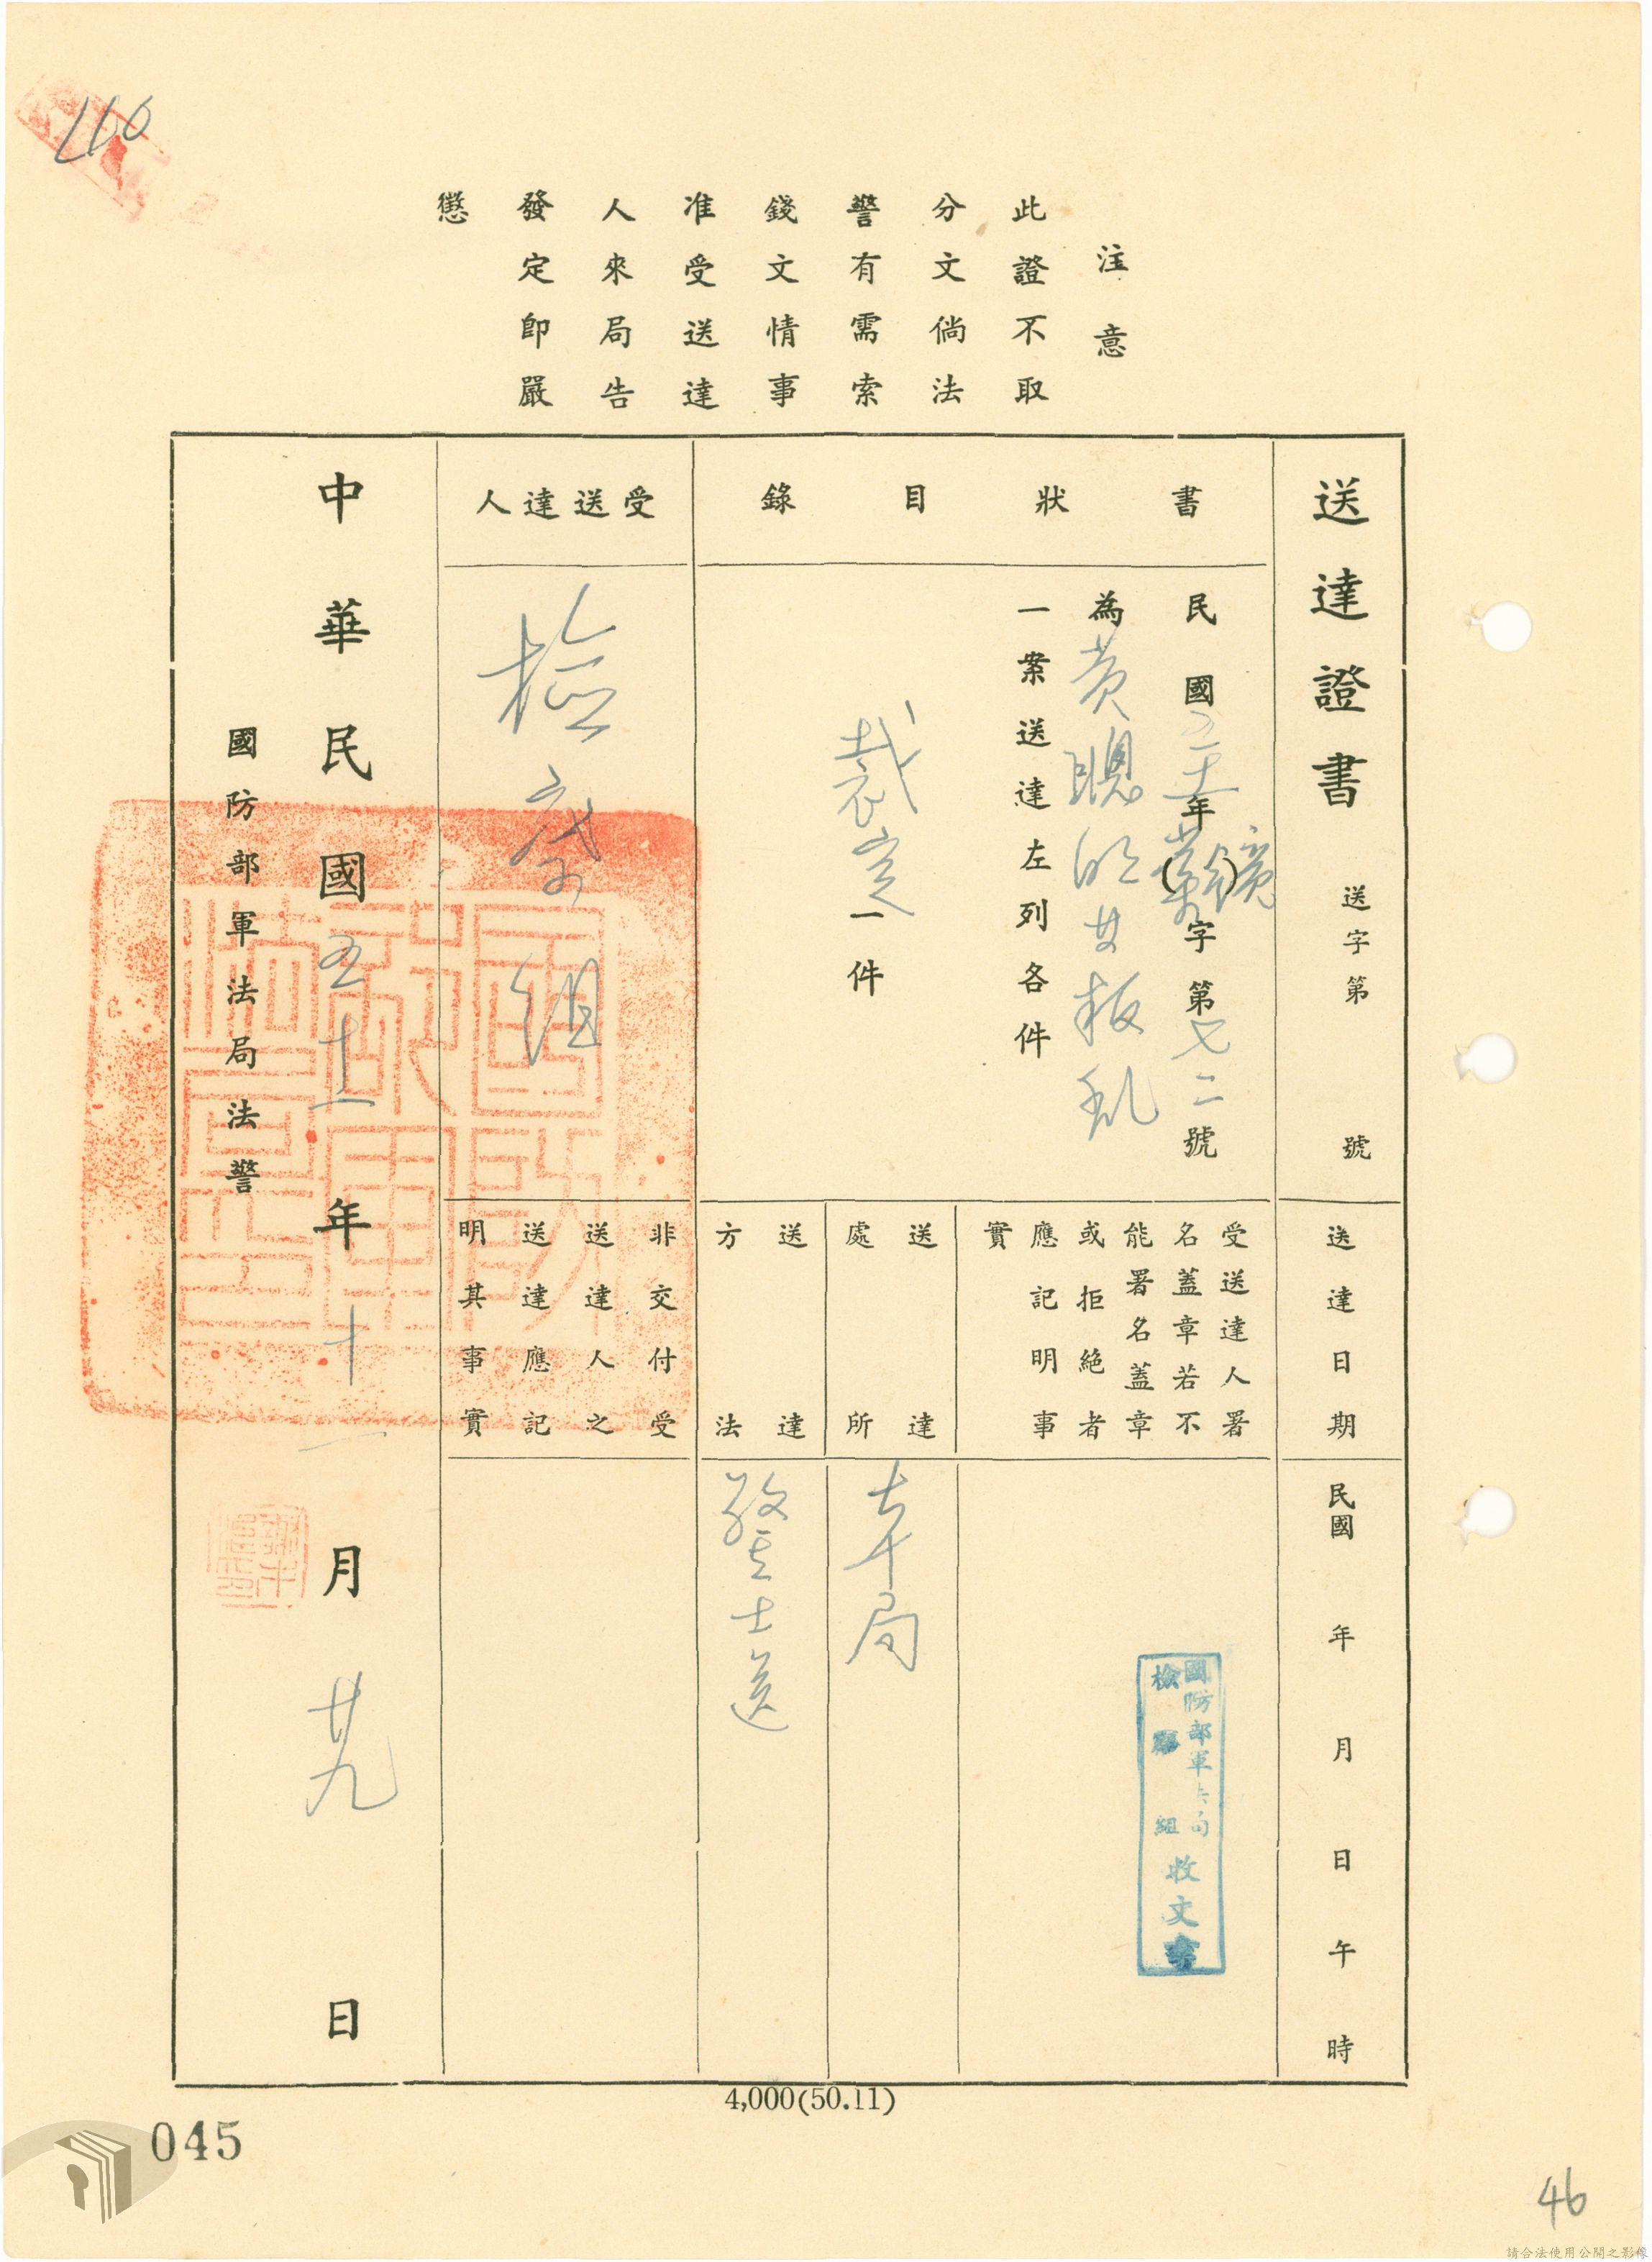 116
注意
此證不取
分文倘法
警有需索
錢文情事
准受送達
人來局告
發定即嚴
懲
送達證書 送字第 號
書狀目錄
民國五十一年(覆)字第七二號
為黃聰明等叛乱
一案送達左列各件
裁定一件
受送達人
檢察組
送達日期
民國 年 月 日 午 時
受送達人署
名蓋章若不
能署名蓋章
或拒絕者
應記明事
實
國防部軍法局
檢察組
收文章
送達
處所
本局
送達
方法
警士送
非交付受
送達人之
送達應記
明其事實
中華民國五十一年十一月廿九日
國防部軍法局法警
4,000(50.11)
045
46
請合法使用公開之影像